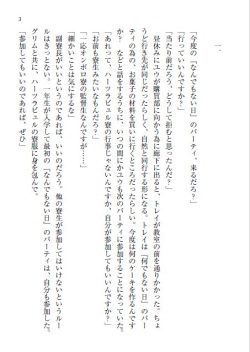 3
一、
「今度の『なんでもない日』のパーティ、来るだろ？」
「行っていいんですか？」
「当たり前だろ。どうして拒むと思ったんだ？」
　昼休みにユウが購買部に向かう為に廊下に出ると、トレイが教室の前を通りかかった。ちょ
うど行き先が同じだったらしく、自然と同行する形になる。トレイは「何でもない日」のパー
ティの為の、お菓子の材料を買いに行くところだったらしい。今度は何のケーキを作るんです
か？　などと話をするうちに、いつの間にかユウも次のパーティに参加することになっていた。
「あれって、ハーツラビュル寮の行事じゃないんですか、自分が参加してもいいんですか？」
「お前も寮生みたいなもんだろ？」
「一応オンボロ寮の監督生なんですが」
「細かいことは気にするな」
　副寮長がいいというのであれば、いいのだろう。他の寮生が参加してはいけないというルー
ルはきっとない。一年生が入学して最初の「なんでもない日」のパーティは、自分も参加した。
グリムと共に、ハーツラビュルの寮服に身を包んで。
「参加してもいいのであれば、ぜひ」